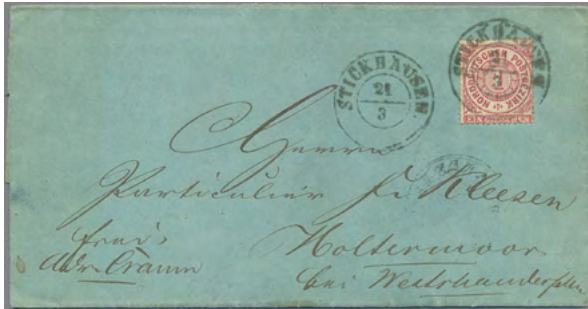 STICKHAUSEN.
21
3
STICKHAUSEN
21
3
NORDDEUTSCHER POSTBEZIRK
Herrn
Particulier F. Kleesen
frei,
Holtermoor
bei Westrhauderfehn